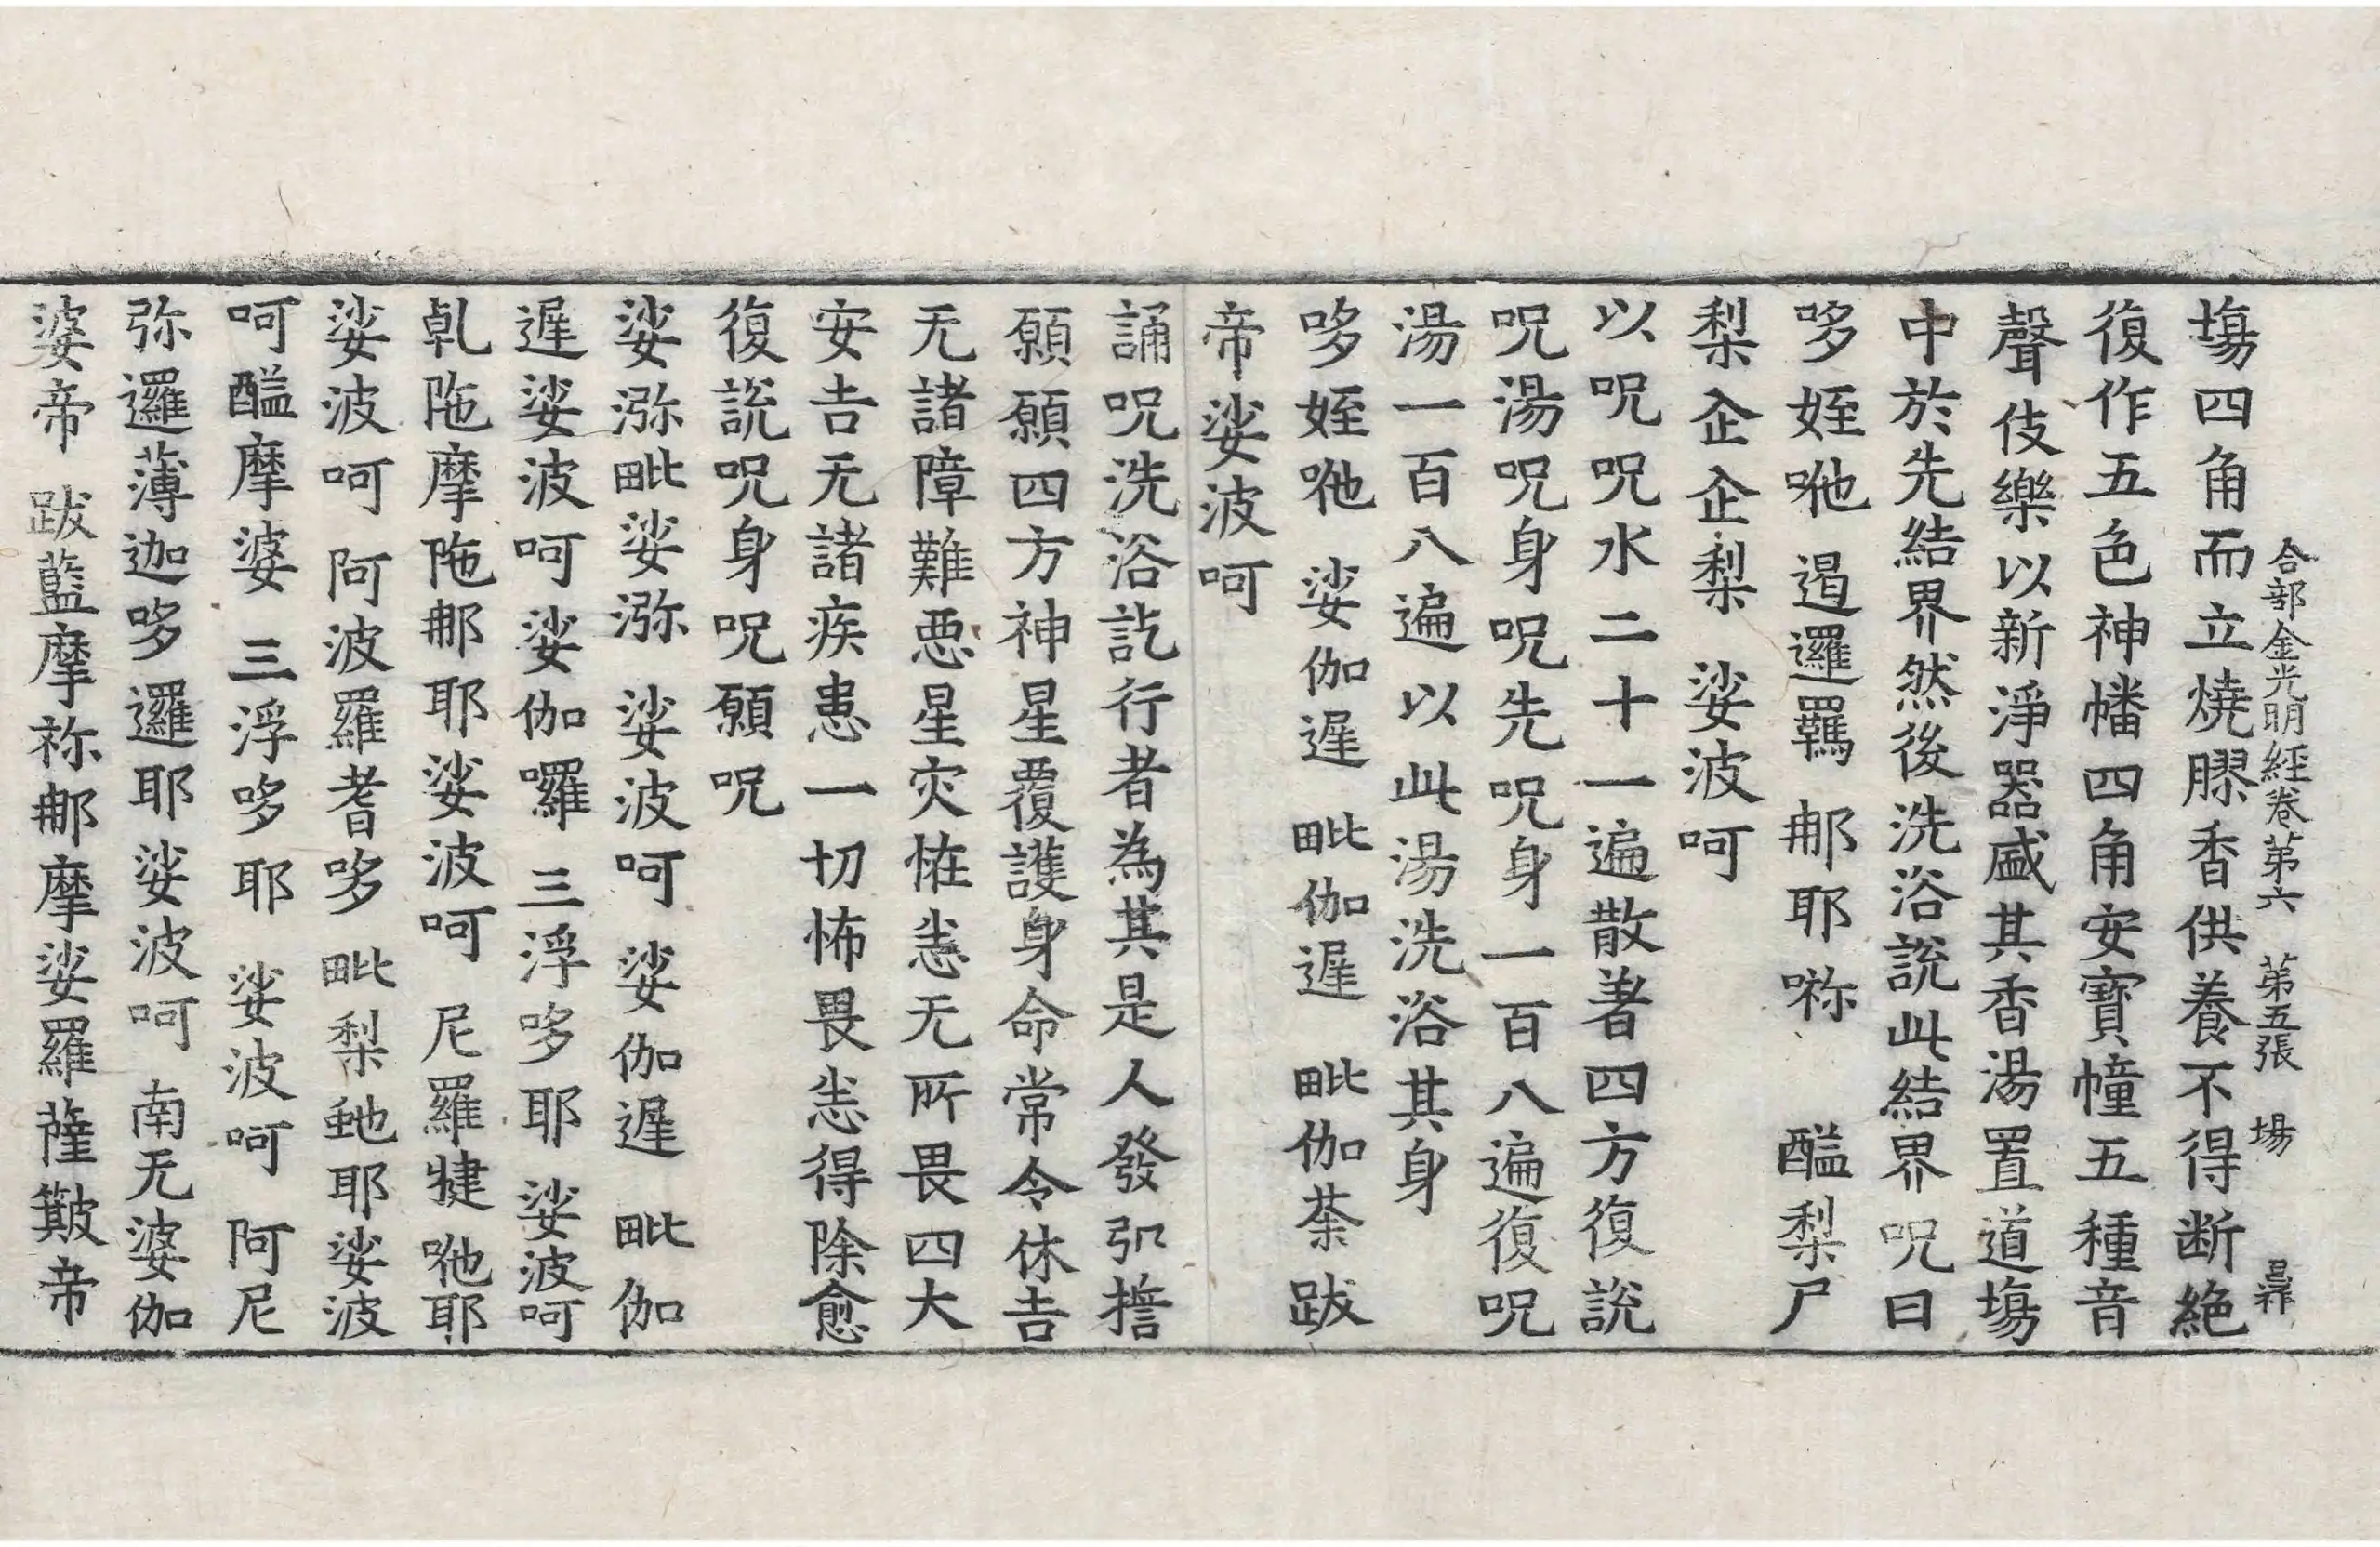 合部金光明經卷第六 第五張 場
場四角而立燒膠香供養不得断絕
復作五色神幡四角安寶幢五種音
聲伎樂以新淨器盛其香湯置道場
中於先結界然後洗浴說此結界呪曰
哆姪哋 遏邏羈 那耶㖿 醯梨尸
梨企企梨 娑波呵
以呪呪水二十一遍散著四方復說
呪湯呪身呪先呪身一百八遍復呪
湯一百八遍以此湯洗浴其身
哆姪哋 娑伽遲 毗伽遲 毗伽荼跋
帝娑波呵
誦呪洗浴訖行者為其是人發弘誓
願願四方神星覆護身命常令休吉
无諸障難惡星灾恠恙无所畏四大
安吉无諸疾患一切怖畏恙得除愈
復說呪身呪願呪
娑沵毗娑沵 娑波呵 娑伽遲 毗伽
遲娑波呵娑伽囉 三浮哆耶 娑波呵
乹陁摩陁那耶娑波呵 尼羅揵哋耶
娑波呵 阿波羅耆哆 毗梨虵耶娑波
呵醯摩婆 三浮哆耶 娑波呵 阿尼
弥邏薄迦哆邏耶娑波呵 南无婆伽
婆帝 跋藍摩祢那摩娑羅薩䩗帝